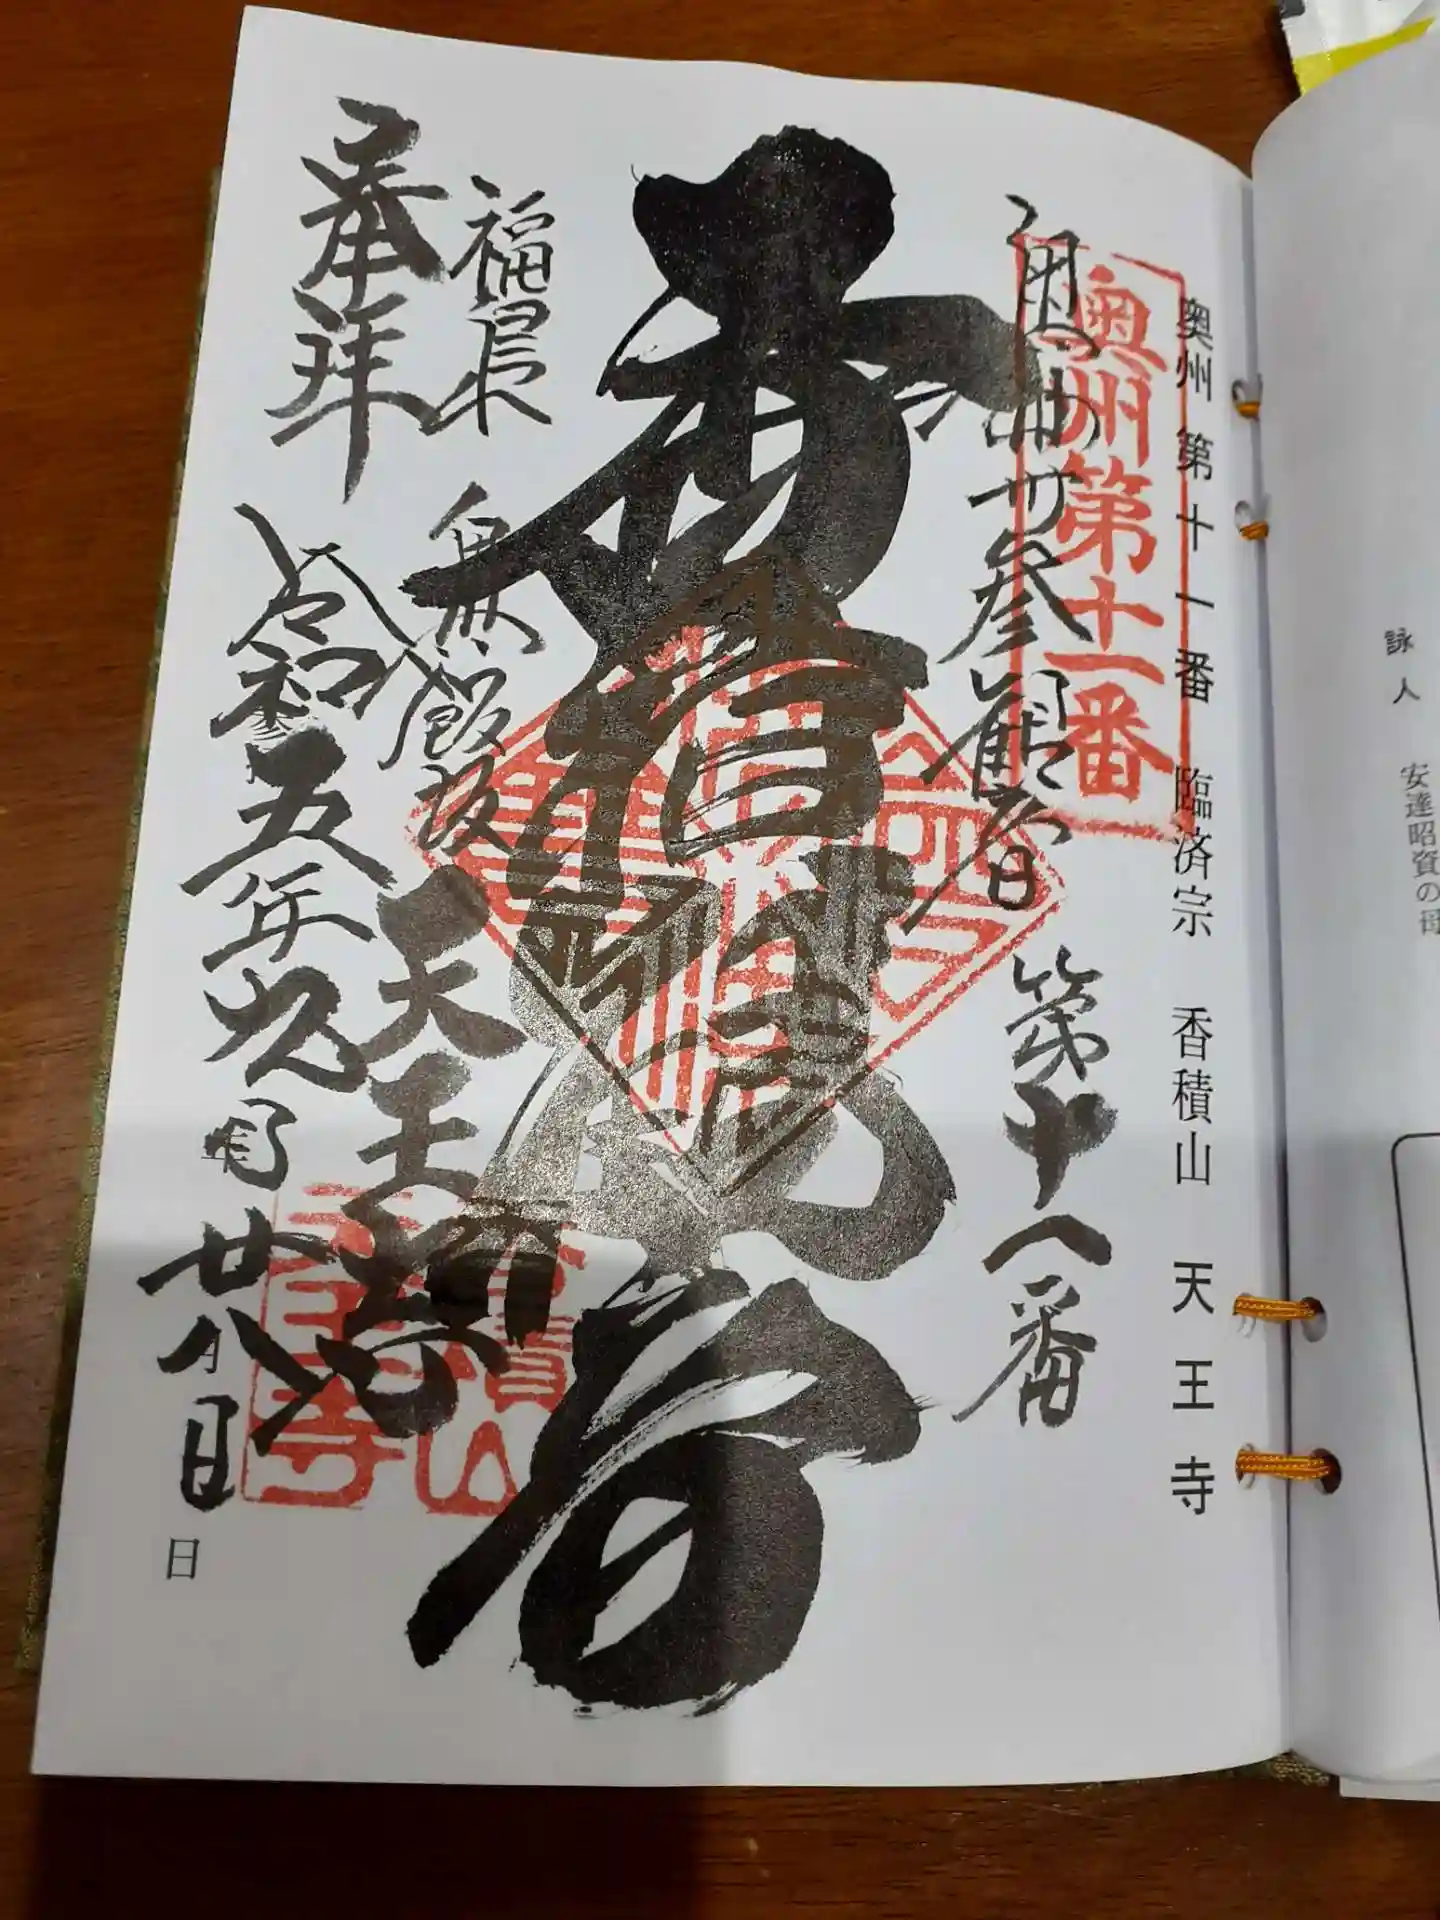 詠人 安達昭資の母
奥州第十一番 臨済宗 香積山 天王寺
奥州第十一番
奥州卅参観音 第十一番
観音
福島
飯坂
天王禅寺
香積山
天王寺
奉拝 令和五年九月廿八日
月
日